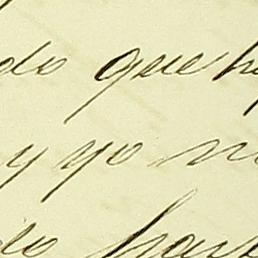 do que h
y yo n
do par